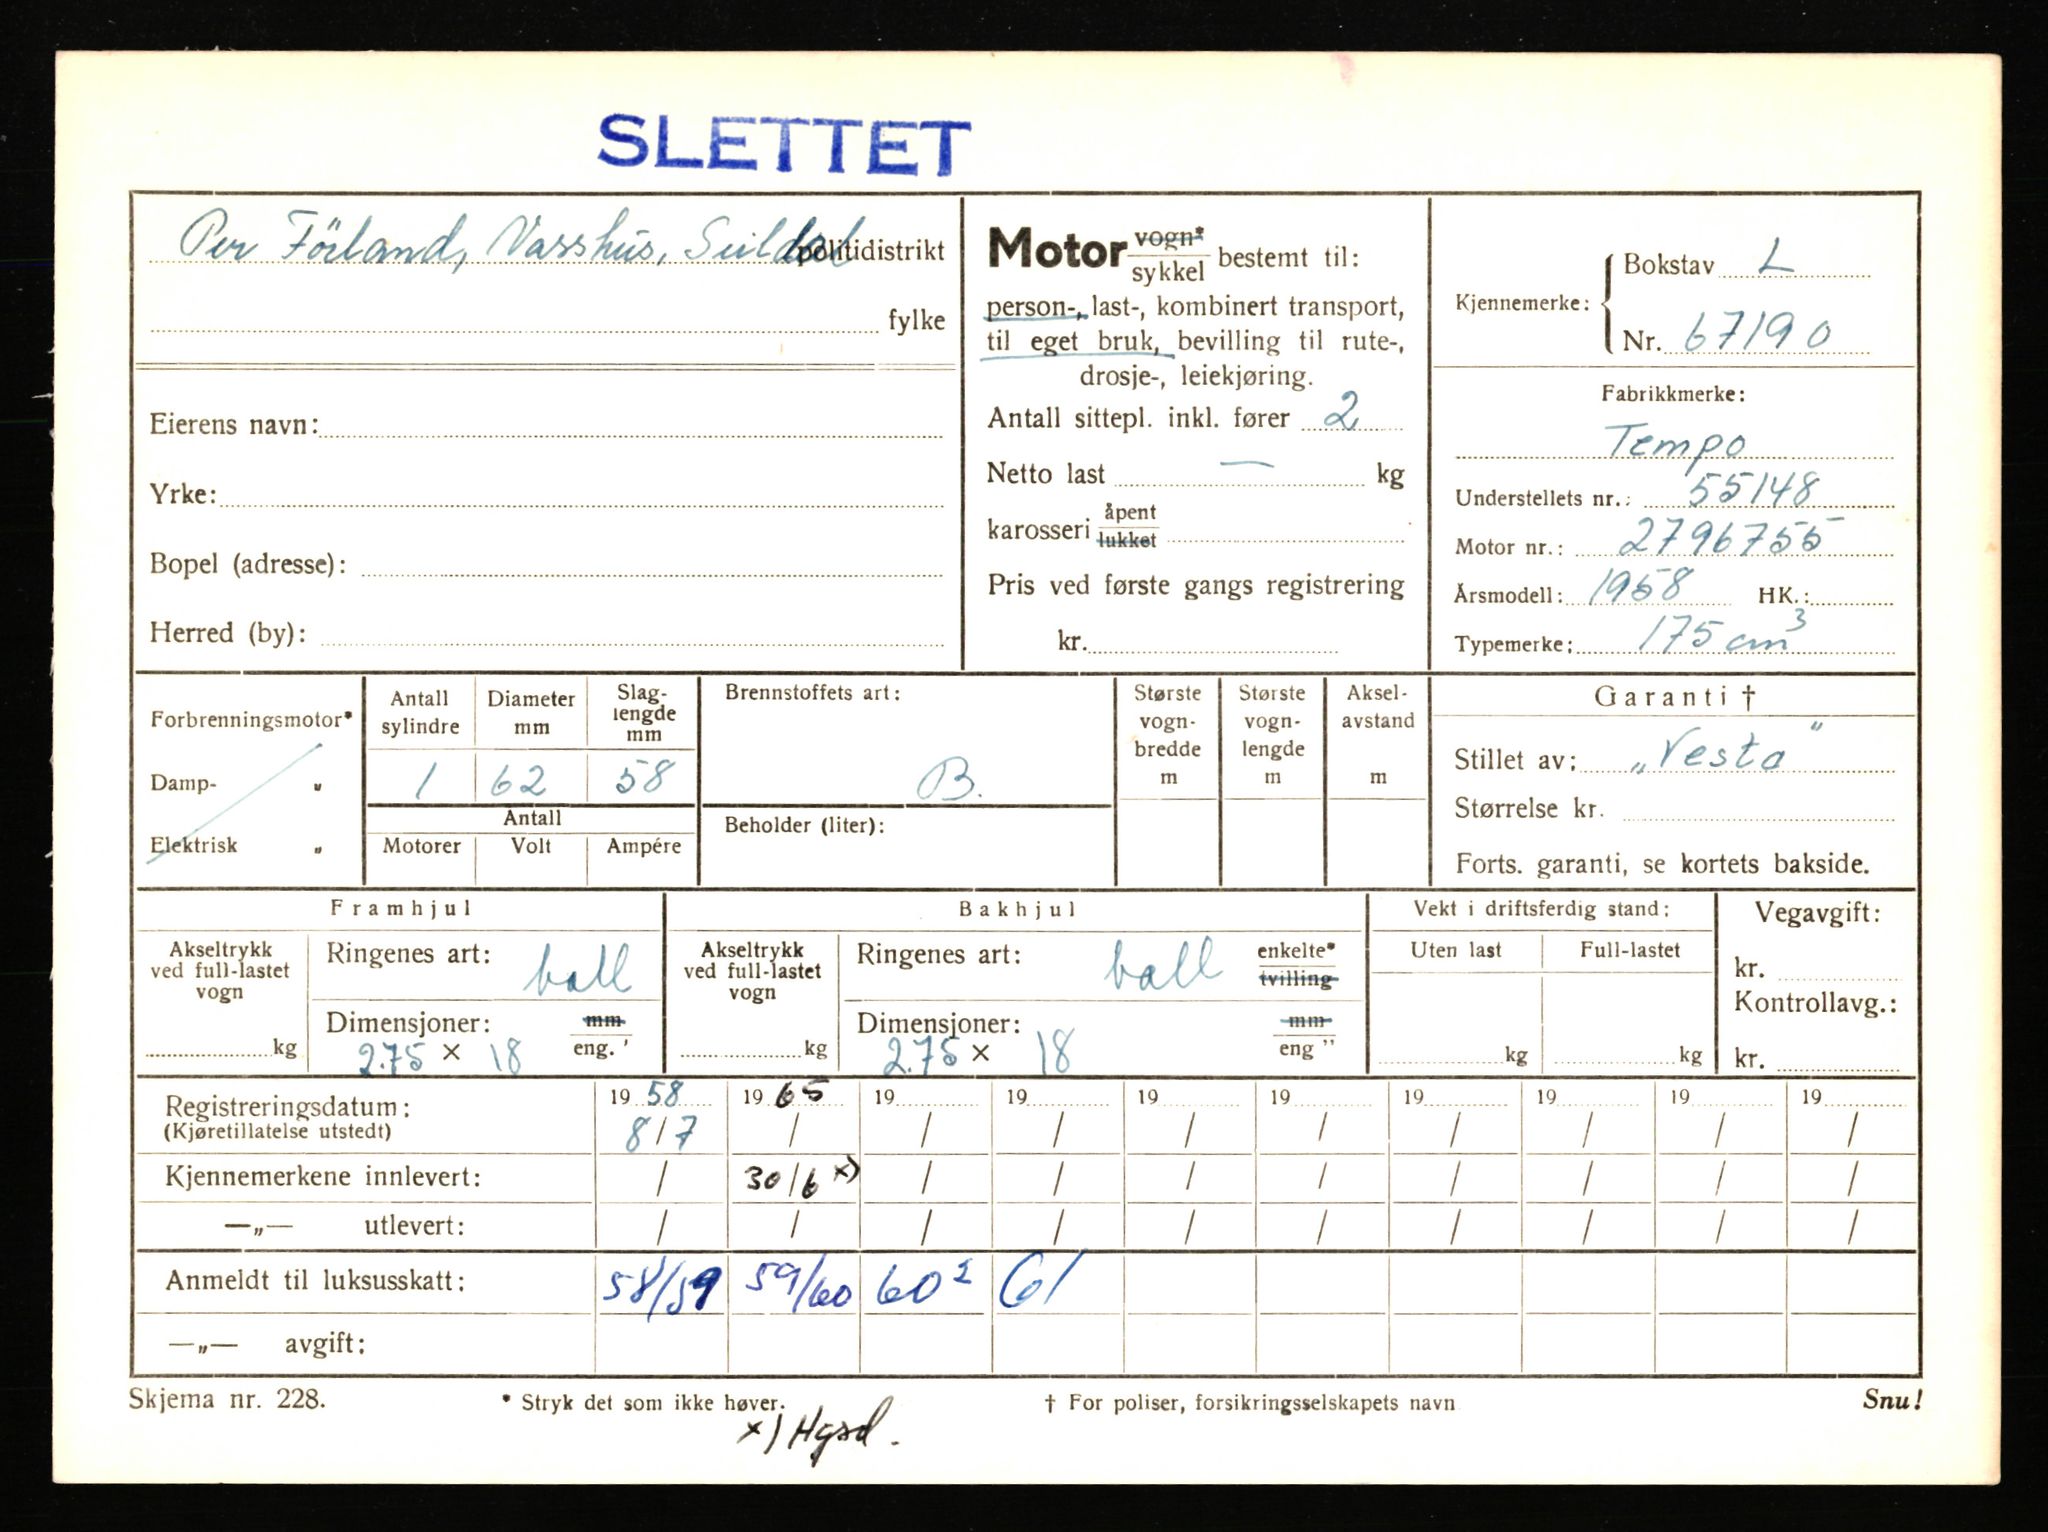 SLETTET
Per Förland, Vasshus, Suldal politidistrikt
fylke
Eierens navn:
Yrke:
Bopel (adresse):
Herred (by):
Motor vogn* / sykkel bestemt til:
person-, last-, kombinert transport,
til eget bruk, bevilling til rute-,
drosje-, leiekjøring.
Antall sittepl. inkl. fører 2
Netto last — kg
karosseri åpent / lukket
Pris ved første gangs registrering
kr.
Kjennemerke: Bokstav L
Nr. 67190
Fabrikkmerke:
Tempo
Understellets nr.: 55148
Motor nr.: 2796755
Årsmodell: 1958 HK.:
Typemerke: 175 cm³
Forbrenningsmotor*
Damp- „
Elektrisk „
Antall sylindre Diameter mm Slag-lengde mm
1 62 58
Antall
Motorer Volt Ampére
Brennstoffets art:
B.
Beholder (liter):
Største vogn-bredde m
Største vogn-lengde m
Aksel-avstand m
Garanti †
Stillet av: „Vesta"
Størrelse kr.
Forts. garanti, se kortets bakside.
Framhjul
Akseltrykk ved full-lastet vogn
kg
Ringenes art: ball
Dimensjoner: mm / eng. '
2.75 × 18
Bakhjul
Akseltrykk ved full-lastet vogn
kg
Ringenes art: ball enkelte* / tvilling
Dimensjoner: mm / eng "
2.75 × 18
Vekt i driftsferdig stand:
Uten last Full-lastet
kg kg
Vegavgift:
kr.
Kontrollavg.:
kr.
Registreringsdatum: 19 58 19 65 19 19 19 19 19 19 19 19
(Kjøretillatelse utstedt) 8/7 / / / / / / / / /
Kjennemerkene innlevert: / 30/6 x) / / / / / / / /
—„— utlevert: / / / / / / / / / /
Anmeldt til luksusskatt: 58/59 59/60 60² 61
—„— avgift:
Skjema nr. 228. * Stryk det som ikke høver. † For poliser, forsikringsselskapets navn Snu!
x) Hgsd.